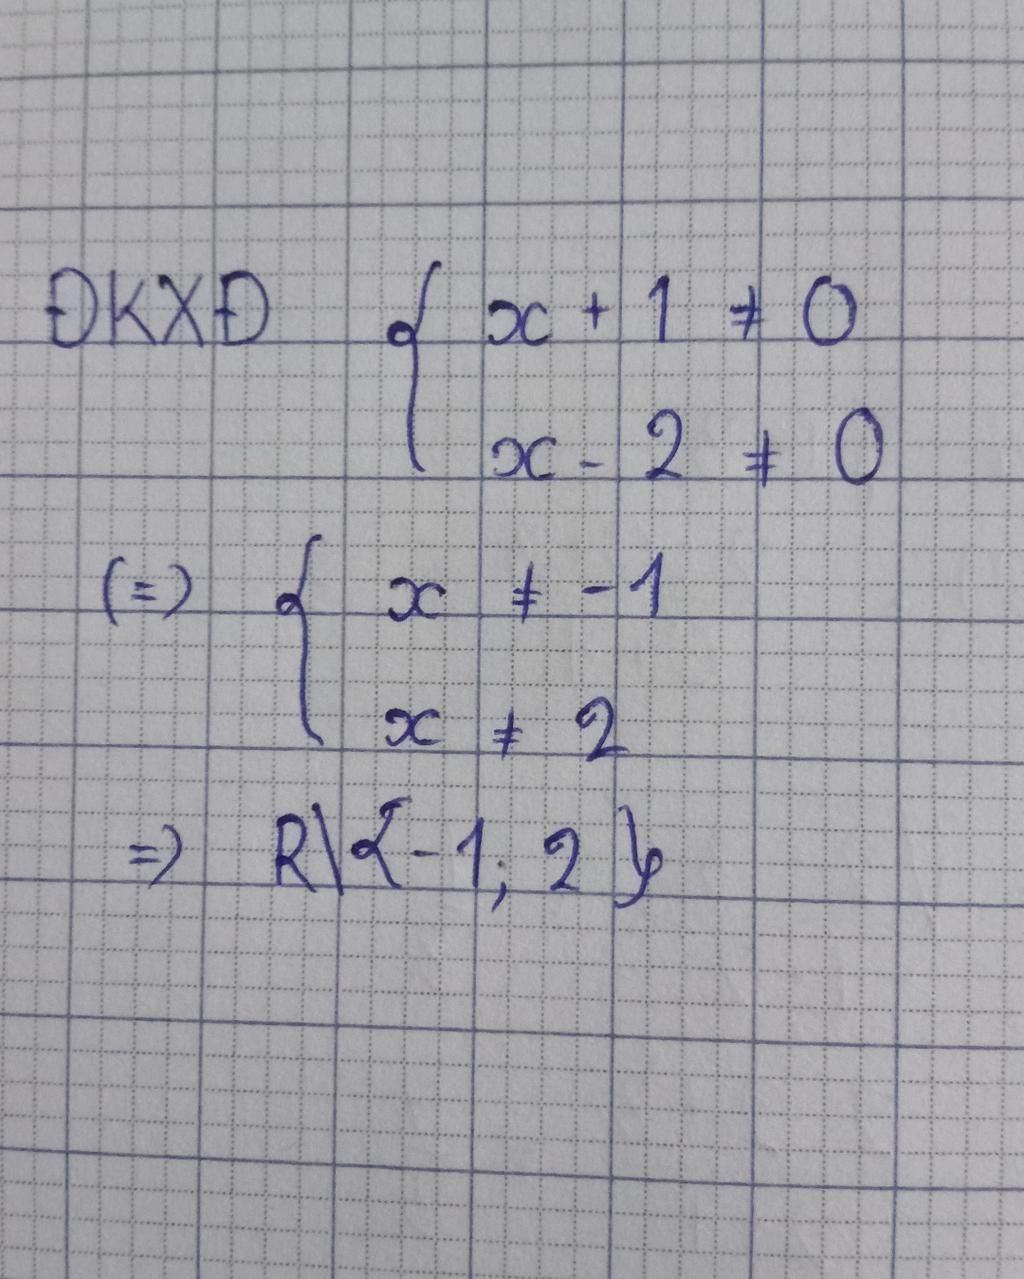 ĐKXĐ { x + 1 ≠ 0
x - 2 ≠ 0
(=) { x ≠ -1
x ≠ 2
=) R\{-1; 2}